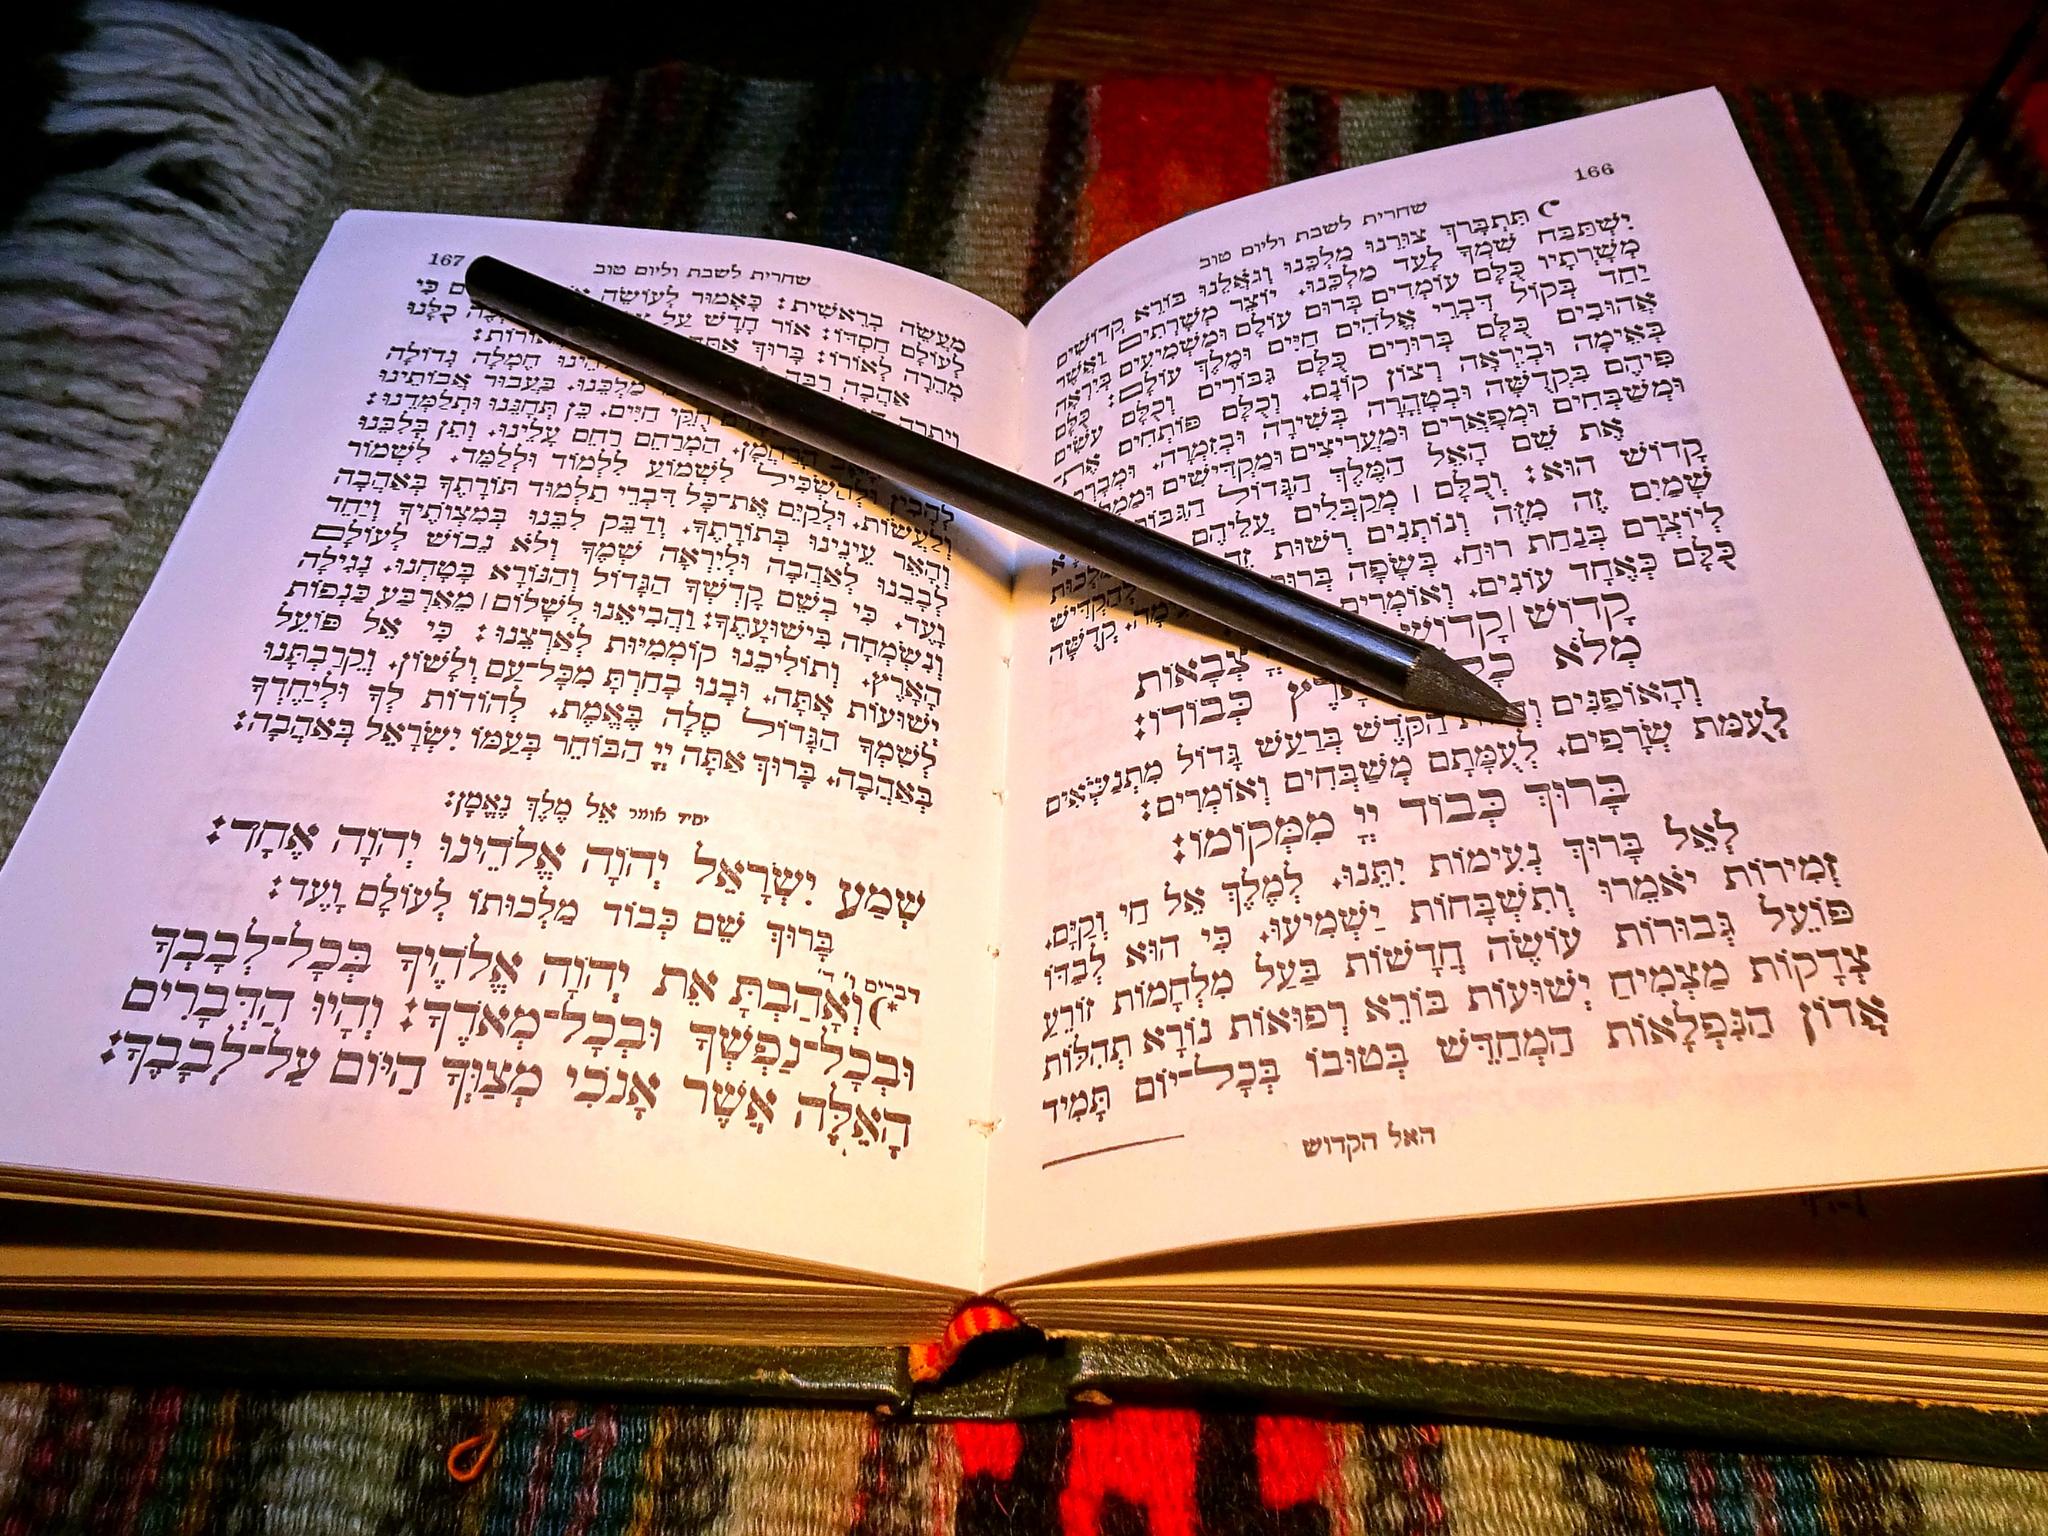 166
שחרית לשבת וליום טוב
תִּתְבָּרַךְ צוּרֵנוּ מַלְכֵּנוּ וְגֹאֲלֵנוּ בּוֹרֵא קְדוֹשִׁים
יִשְׁתַּבַּח שִׁמְךָ לָעַד מַלְכֵּנוּ. יוֹצֵר מְשָׁרְתִים וַאֲשֶׁר
מְשָׁרְתָיו כֻּלָּם עוֹמְדִים בְּרוּם עוֹלָם וּמַשְׁמִיעִים בְּיִרְאָה
יַחַד בְּקוֹל דִּבְרֵי אֱלֹהִים חַיִּים וּמֶלֶךְ עוֹלָם: כֻּלָּם
אֲהוּבִים כֻּלָּם בְּרוּרִים כֻּלָּם גִּבּוֹרִים וְכֻלָּם עֹשִׂים
בְּאֵימָה וּבְיִרְאָה רְצוֹן קוֹנָם. וְכֻלָּם פּוֹתְחִים אֶת־
פִּיהֶם בִּקְדֻשָּׁה וּבְטָהֳרָה בְּשִׁירָה וּבְזִמְרָה. וּמְבָרְכִים
וּמְשַׁבְּחִים וּמְפָאֲרִים וּמַעֲרִיצִים וּמַקְדִּישִׁים
אֶת שֵׁם הָאֵל הַמֶּלֶךְ הַגָּדוֹל הַגִּבּוֹר
קָדוֹשׁ הוּא: וְכֻלָּם | מְקַבְּלִים עֲלֵיהֶם מַלְכוּת
שָׁמַיִם זֶה מִזֶּה וְנוֹתְנִים רְשׁוּת לְהַקְדִּישׁ
לְיוֹצְרָם בְּנַחַת רוּחַ. בְּשָׂפָה קְדֻשָּׁה
כֻּלָּם כְּאֶחָד עוֹנִים. וְאוֹמְרִים
קָדוֹשׁ | קָדוֹשׁ צְבָאוֹת
מְלֹא כְּבוֹדוֹ:
וְהָאוֹפַנִּים הַקֹּדֶשׁ בְּרַעַשׁ גָּדוֹל מִתְנַשְּׂאִים
לְעֻמַּת שְׂרָפִים. לְעֻמָּתָם מְשַׁבְּחִים וְאוֹמְרִים:
בָּרוּךְ כְּבוֹד יְיָ מִמְּקוֹמוֹ:
לְאֵל בָּרוּךְ נְעִימוֹת יִתֵּנוּ. לְמֶלֶךְ אֵל חַי וְקַיָּם.
זְמִירוֹת יֹאמֵרוּ וְתִשְׁבָּחוֹת יַשְׁמִיעוּ. כִּי הוּא לְבַדּוֹ
פּוֹעֵל גְּבוּרוֹת עוֹשֶׂה חֲדָשׁוֹת בַּעַל מִלְחָמוֹת זוֹרֵעַ
צְדָקוֹת מַצְמִיחַ יְשׁוּעוֹת בּוֹרֵא רְפוּאוֹת נוֹרָא תְהִלּוֹת
אֲדוֹן הַנִּפְלָאוֹת הַמְחַדֵּשׁ בְּטוּבוֹ בְּכָל־יוֹם תָּמִיד
האל הקדוש
167
שחרית לשבת וליום טוב
מַעֲשֵׂה בְרֵאשִׁית: כָּאָמוּר לְעוֹשֵׂה כִּי
לְעוֹלָם חַסְדּוֹ: אוֹר חָדָשׁ עַל כֻלָּנוּ
מְהֵרָה לְאוֹרוֹ: בָּרוּךְ אַתָּה
אַהֲבָה רַבָּה חֶמְלָה גְדוֹלָה
וִיתֵרָה מַלְכֵּנוּ. בַּעֲבוּר אֲבוֹתֵינוּ
חֻקֵּי חַיִּים. כֵּן תְּחָנֵּנוּ וּתְלַמְּדֵנוּ:
הָרַחֲמָן. הַמְרַחֵם רַחֵם עָלֵינוּ. וְתֵן בְּלִבֵּנוּ
לְהָבִין וּלְהַשְׂכִּיל לִשְׁמוֹעַ לִלְמוֹד וּלְלַמֵּד. לִשְׁמוֹר
וְלַעֲשׂוֹת. וּלְקַיֵּם אֶת־כָּל דִּבְרֵי תַלְמוּד תּוֹרָתֶךָ בְּאַהֲבָה
וְהָאֵר עֵינֵינוּ בְּתוֹרָתֶךָ. וְדַבֵּק לִבֵּנוּ בְּמִצְוֹתֶיךָ וְיַחֵד
לְבָבֵנוּ לְאַהֲבָה וּלְיִרְאָה שְׁמֶךָ וְלֹא נֵבוֹשׁ לְעוֹלָם
וָעֶד. כִּי בְשֵׁם קָדְשְׁךָ הַגָּדוֹל וְהַנּוֹרָא בָּטָחְנוּ. נָגִילָה
וְנִשְׂמְחָה בִּישׁוּעָתֶךָ: וַהֲבִיאֵנוּ לְשָׁלוֹם | מֵאַרְבַּע כַּנְפוֹת
הָאָרֶץ. וְתוֹלִיכֵנוּ קוֹמְמִיּוּת לְאַרְצֵנוּ: כִּי אֵל פּוֹעֵל
יְשׁוּעוֹת אָתָּה. וּבָנוּ בָחַרְתָּ מִכָּל־עַם וְלָשׁוֹן. וְקֵרַבְתָּנוּ
לְשִׁמְךָ הַגָּדוֹל סֶלָה בֶּאֱמֶת. לְהוֹדוֹת לְךָ וּלְיַחֶדְךָ
בְּאַהֲבָה. בָּרוּךְ אַתָּה יְיָ הַבּוֹחֵר בְּעַמּוֹ יִשְׂרָאֵל בְּאַהֲבָה:
יחיד אומר אֵל מֶלֶךְ נֶאֱמָן:
שְׁמַע יִשְׂרָאֵל יְהוָֹה אֱלֹהֵינוּ יְהוָֹה אֶחָד:
בָּרוּךְ שֵׁם כְּבוֹד מַלְכוּתוֹ לְעוֹלָם וָעֶד:
דברים ו' ה'
*וְאָהַבְתָּ אֵת יְהוָֹה אֱלֹהֶיךָ בְּכָל־לְבָבְךָ
וּבְכָל־נַפְשְׁךָ וּבְכָל־מְאֹדֶךָ: וְהָיוּ הַדְּבָרִים
הָאֵלֶּה אֲשֶׁר אָנֹכִי מְצַוְּךָ הַיּוֹם עַל־לְבָבֶךָ: